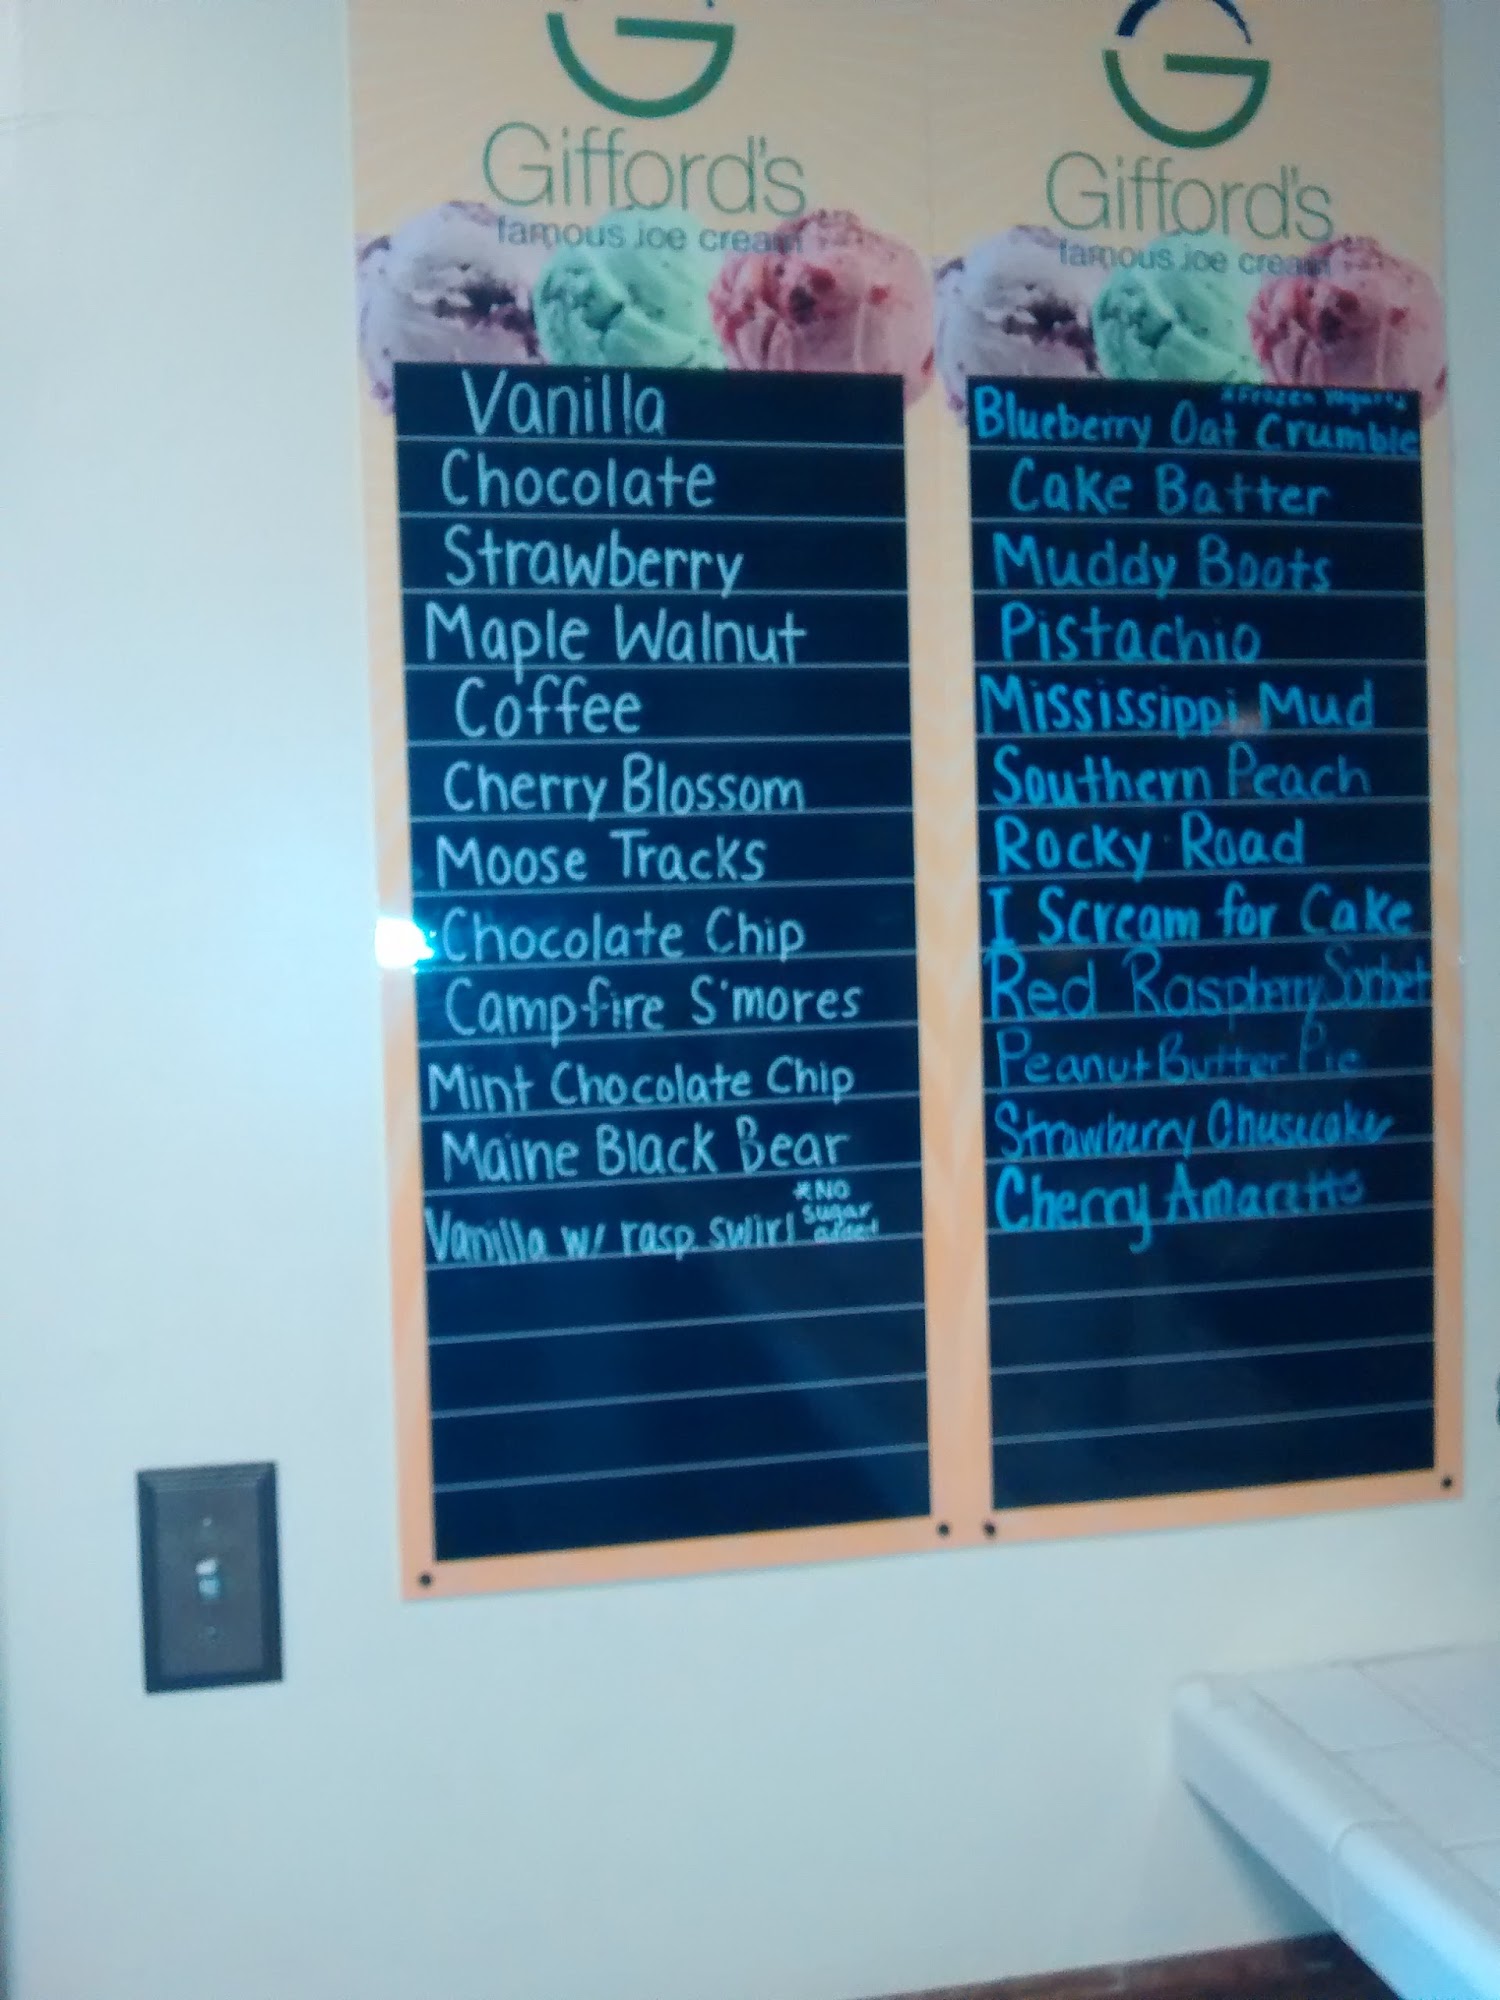 Gifford's
famous ice cream
Vanilla
Chocolate
Strawberry
Maple Walnut
Coffee
Cherry Blossom
Moose Tracks
Chocolate Chip
Campfire S'mores
Mint Chocolate Chip
Maine Black Bear
Vanilla w/ rasp swirl *NO sugar added
Gifford's
famous ice cream
*Frozen Yogurt*
Blueberry Oat Crumble
Cake Batter
Muddy Boots
Pistachio
Mississippi Mud
Southern Peach
Rocky Road
I Scream for Cake
Red Raspberry Sorbet
Peanut Butter Pie
Strawberry Cheesecake
Cherry Amaretto